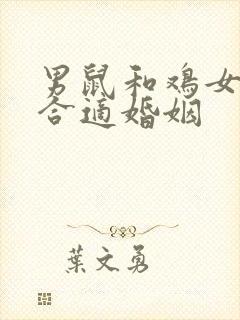 男鼠和鸡女
合适婚姻
葉文勇